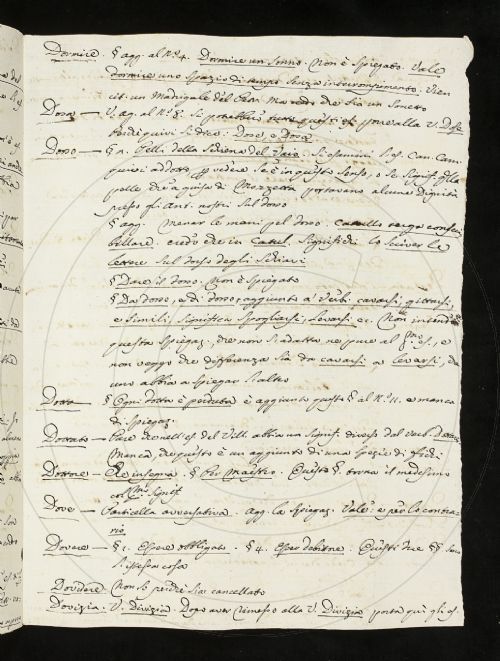 Dormire. § agg. al N.° 4. Dormire un sonno. Non è spiegato. Vale
dormire uno spazio di tempo senza interrompimento. Vien
cit. un Madrigale del che sia un Sonetto
Doso — V. ag. al N.° 8. Si potrebbe questi es. porre alla V. Dose
Perchè quivi si dice: Dose, e Dosa
Dosso — § n. Pelli della schiena del Vaio. Si esamini gli es. Can. Car.
quivi addotto per vedere se è in questo senso, o se signif.
pelle che a guisa di Mozzetta portavano alcune dignità
presso gli Ant. nostri sul dosso
§ agg. Menar le mani pel dosso.
credo che in significhi lo scriver le
lettere sul dosso degli Schiavi
§ Dare il dosso. Non è spiegato
§ Da dosso, e di dosso, aggiunto a Verbi cavarsi, gittarsi,
e simili, significa spogliarsi, levarsi ec. Non intendo
questa spiegaz. che non si adatta ne pure al p.mo es., e
non veggo che differenza sia da cavarsi a levarsi, da
uno abbia a spiegar l'altro
Dotta — § Ogni dotta è perduta è aggiunto questo § al N.° 11. e manca
di spiegaz.
Dottato — Pare che nell'es. del Vill. abbia un signif. diverso dal verb. Dottare
Manca che questo è un aggiunto di una spezie di fichi
Dottore — Che insegna § Per Maestro. Questo § torna il medesimo
col p.mo signif.
Dove — Particella avversativa. agg. la spiegaz. Vale: e per lo contra-
rio.
Dovere — § 1. Essere obbligato. § 4. Esser debitore. Questi due §§ sono
l'istessa cosa
Dovidere. Non so perchè sia cancellato
Dovizia. V. Divizia. Dopo aver rimesso alla V. Divizia porta quì gli es.